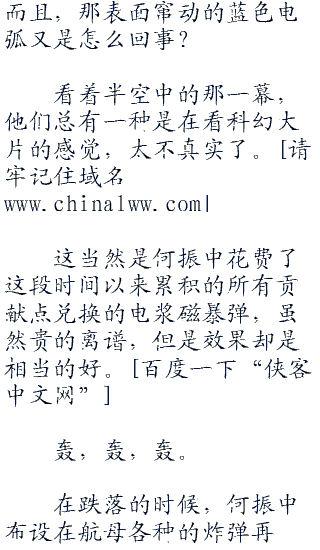 而且，那表面窜动的蓝色电
弧又是怎么回事？
看着半空中的那一幕，
他们总有一种是在看科幻大
片的感觉，太不真实了。[请
牢记住域名
www.chinalww.com|
这当然是何振中花费了
这段时间以来累积的所有贡
献点兑换的电浆磁暴弹，虽
然贵的离谱，但是效果却是
相当的好。[百度一下“侠客
中文网”]
轰，轰，轰。
在跌落的时候，何振中
布设在航母各种的炸弹再